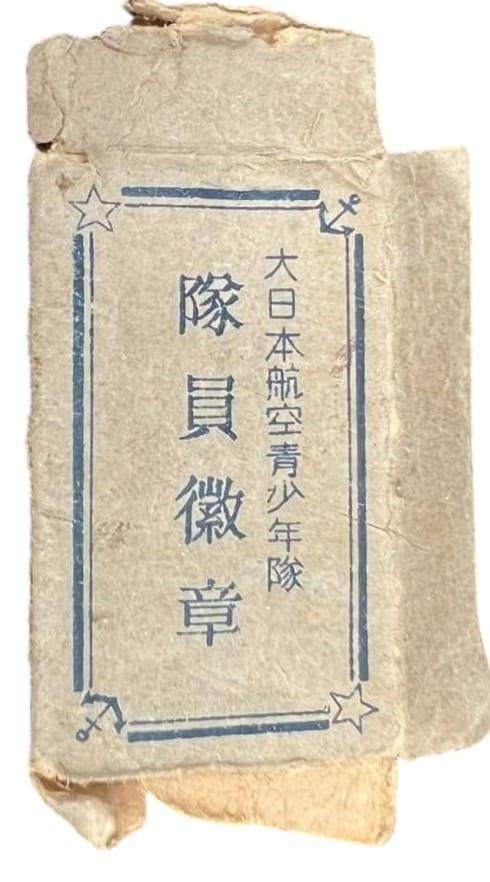 大日本航空青少年隊
隊員徽章